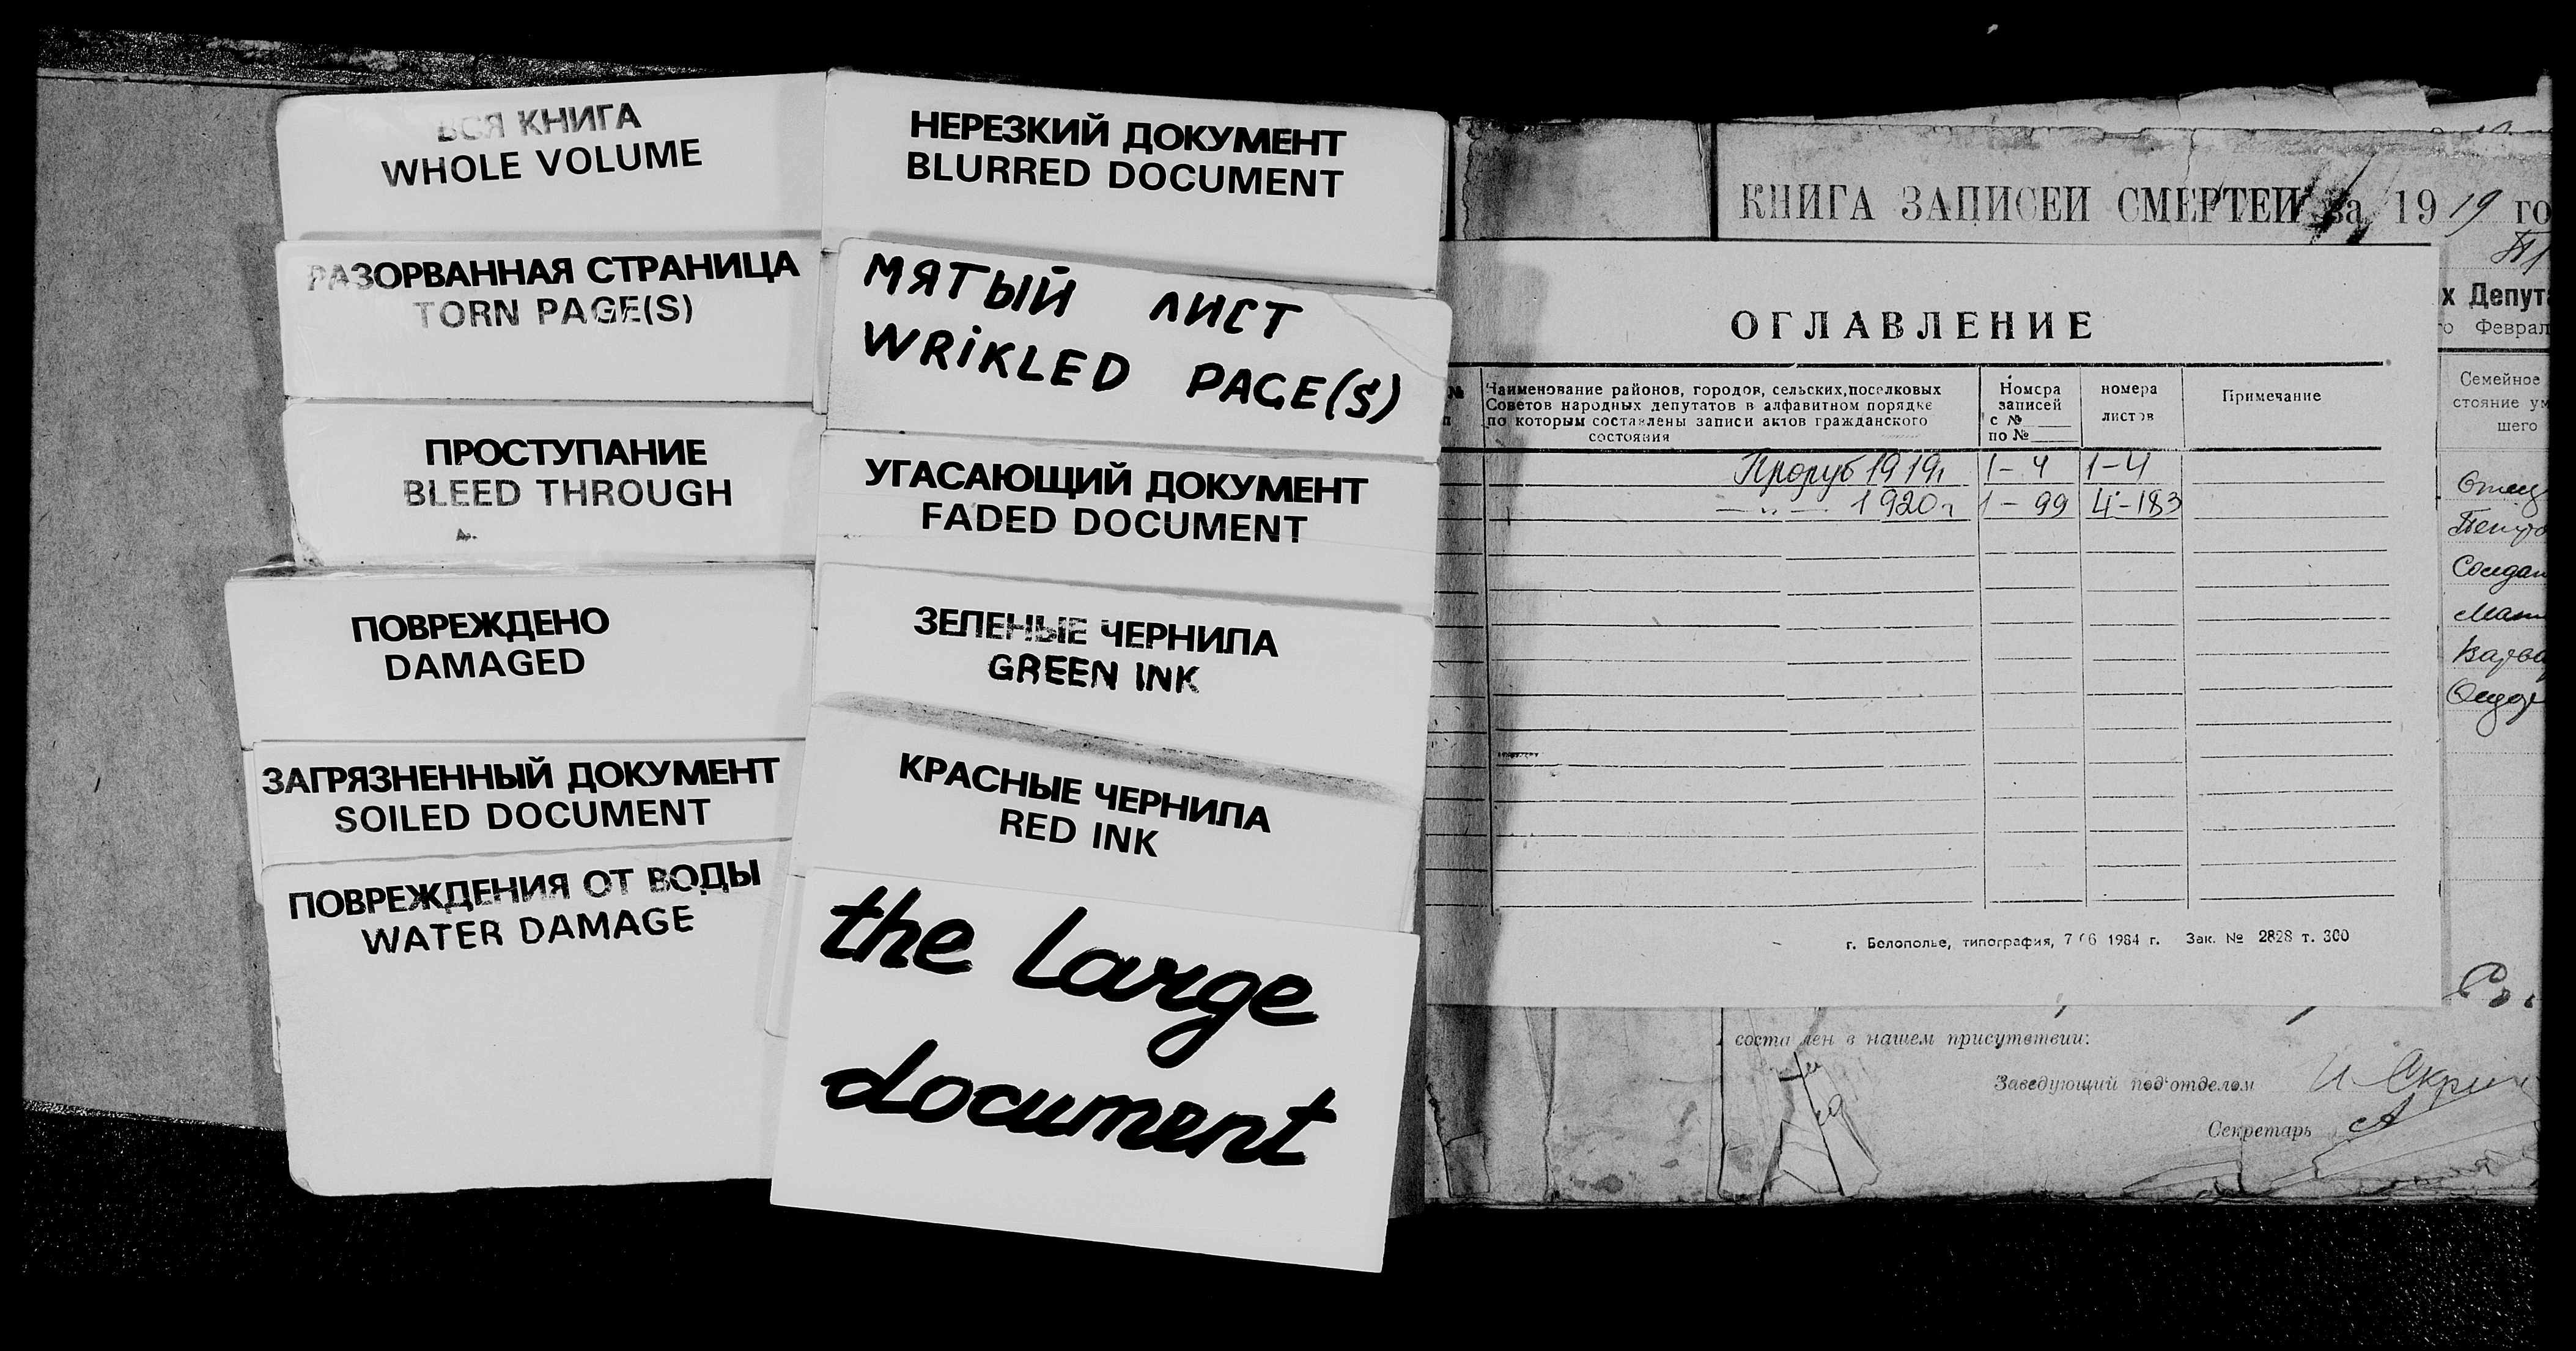 ВСЯ КНИГА
WHOLE VOLUME
РАЗОРВАННАЯ СТРАНИЦА
TORN PAGE(S)
ПРОСТУПАНИЕ
BLEED THROUGH
ПОВРЕЖДЕНО
DAMAGED
ЗАГРЯЗНЕННЫЙ ДОКУМЕНТ
SOILED DOCUMENT
ПОВРЕЖДЕНИЯ ОТ ВОДЫ
WATER DAMAGE
НЕРЕЗКИЙ ДОКУМЕНТ
BLURRED DOCUMENT
МЯТЫЙ ЛИСТ
WRiKLED PAGE(S)
УГАСАЮЩИЙ ДОКУМЕНТ
FADED DOCUMENT
ЗЕЛЕНЫЕ ЧЕРНИЛА
GREEN INK
КРАСНЫЕ ЧЕРНИЛА
RED INK
the large
document
КНИГА ЗАПИСЕЙ СМЕРТЕЙ за 1919 го
х Депут
го Феврал
ОГЛАВЛЕНИЕ
Наименование районов, городов, сельских, поселковых
Советов народных депутатов в алфавитном порядке
по которым составлены записи актов гражданского
состояния
Номера
записей
с №
по №
номера
листов
Примечание
Семейное
стояние ум
шего
Проруб 1919г 1-4 1-4
— " — 1920г 1-99 4-183
г. Белополье, типография, 1984 г. Зак. № 2828 т. 300
составлен в нашем присутствии:
Заведующий подотделом
Секретарь